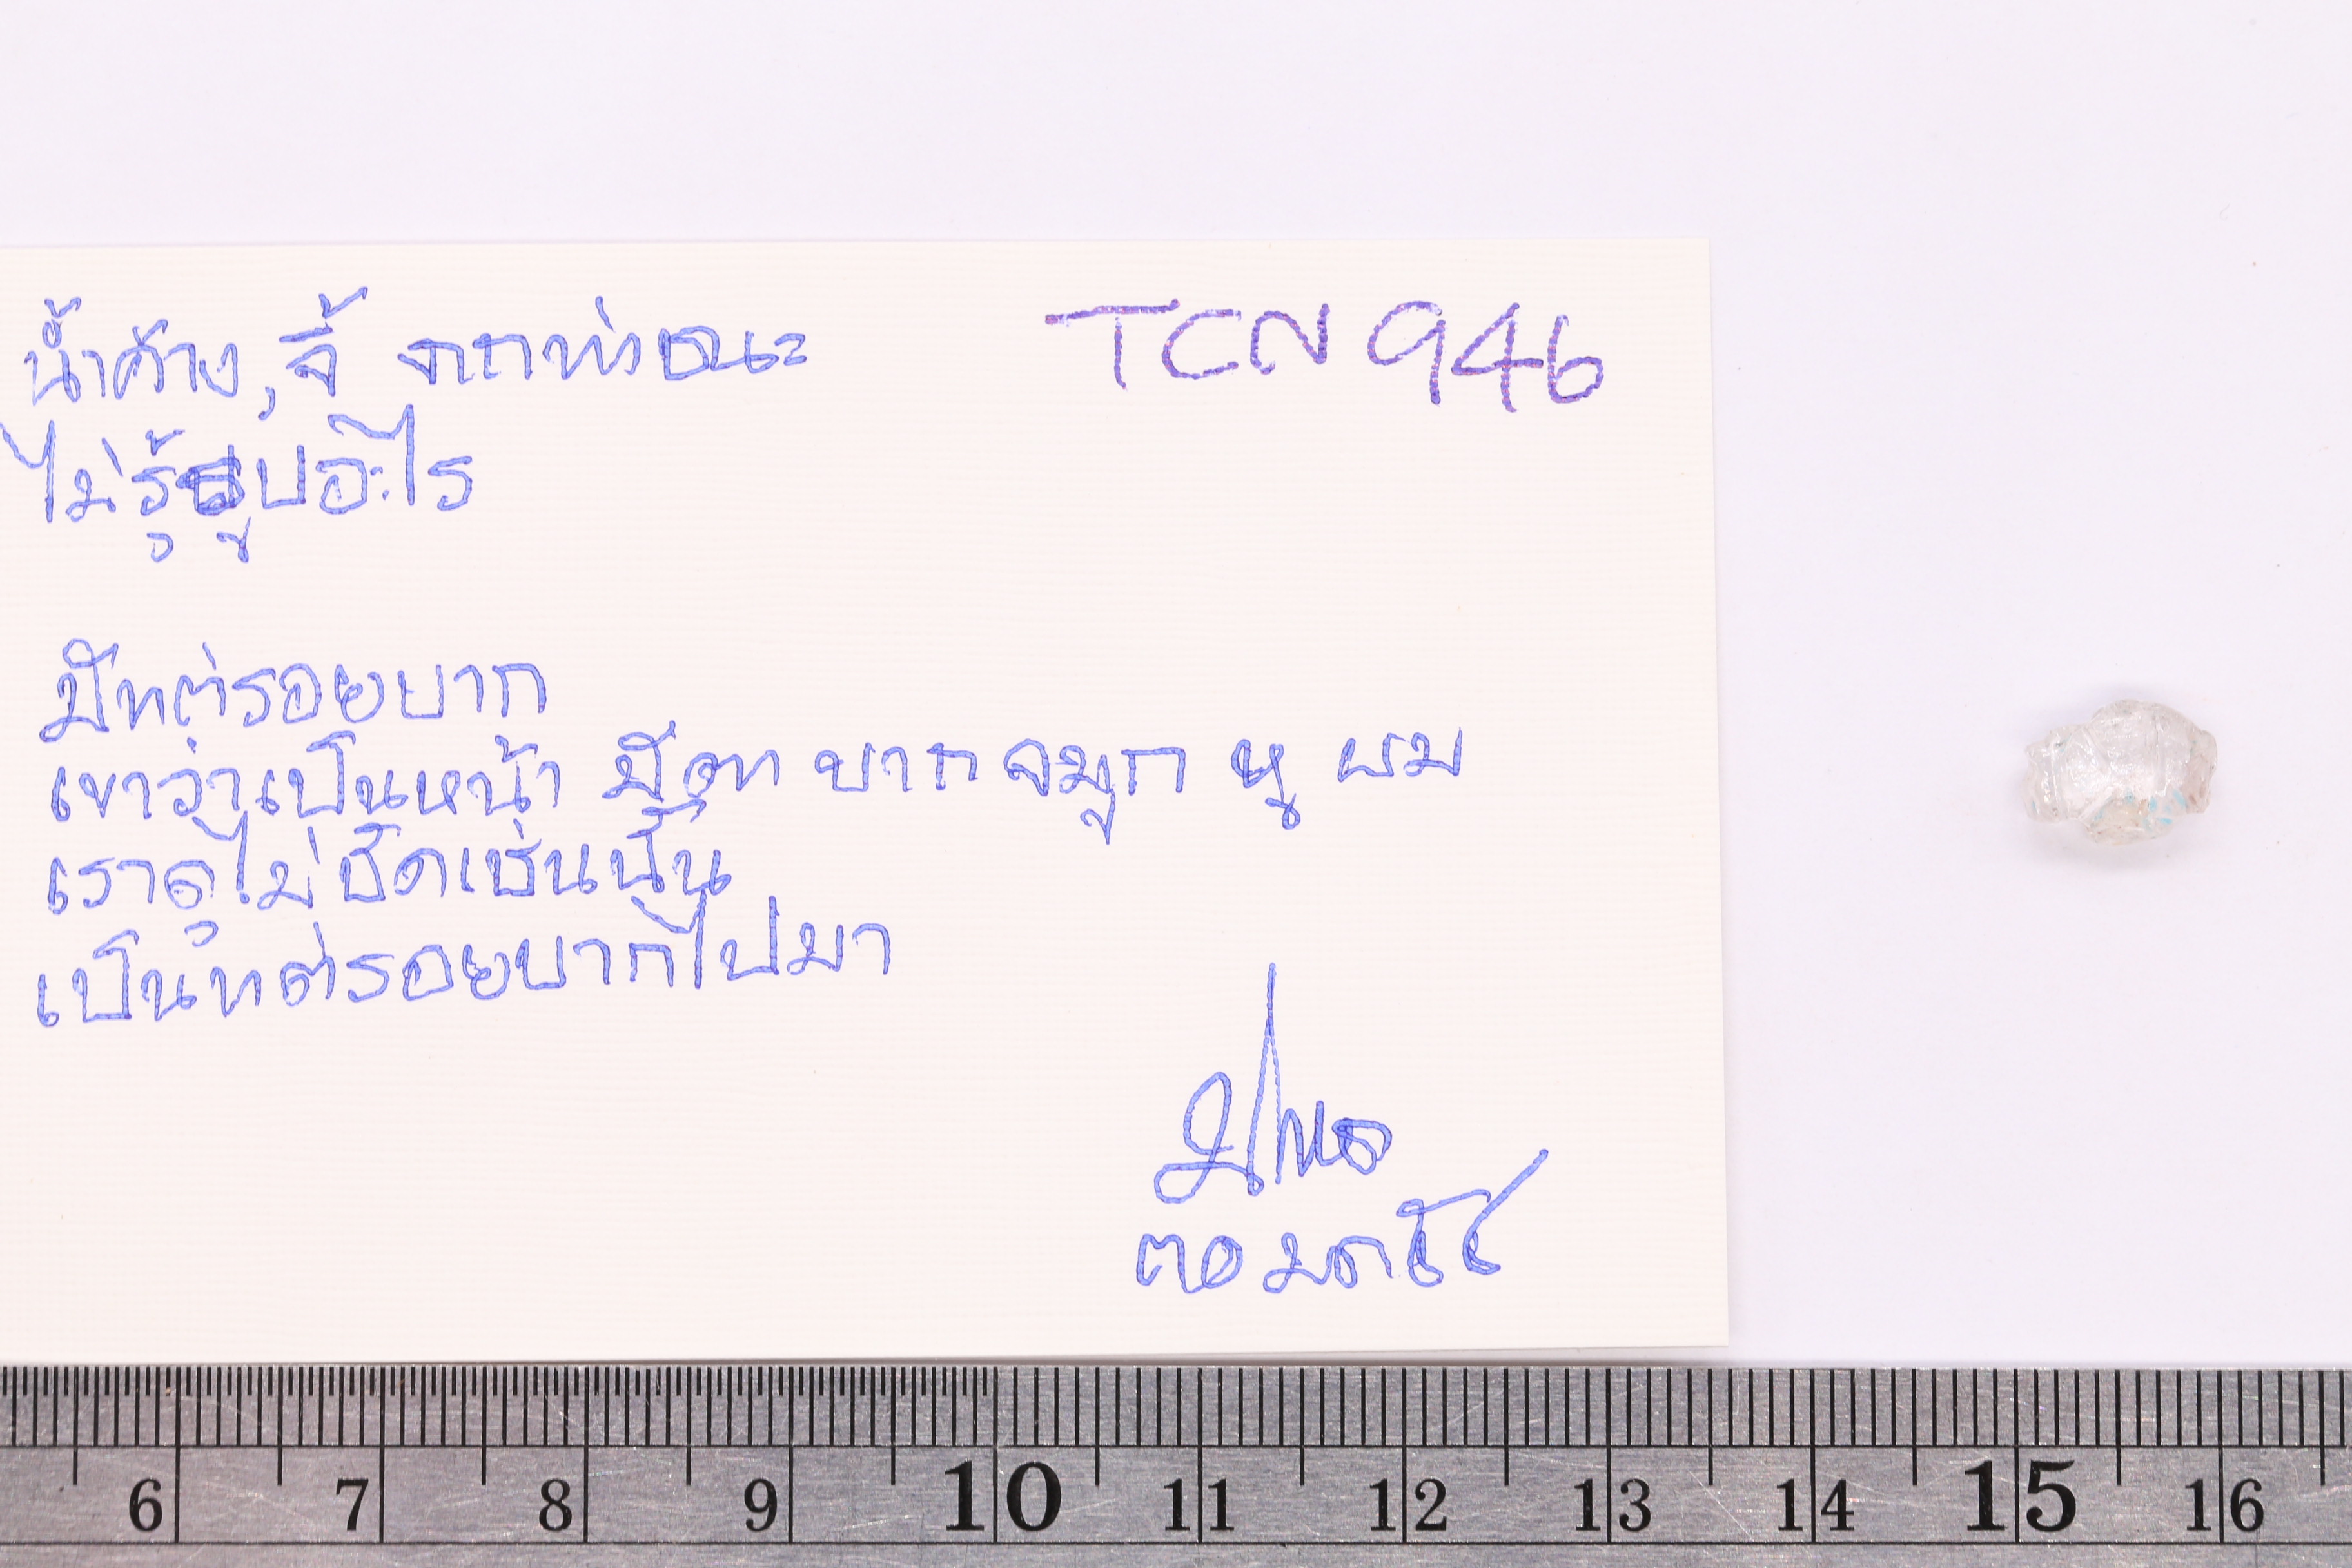 น้ำค้าง, จี้ จากท่าชนะ
TCN 946
ไม่รู้รูปอะไร
มีแต่รอยบาก
เขาว่าเป็นหน้า มีตา ปาก จมูก หู ผม
เราดูไม่ชัดเช่นนั้น
เป็นแต่รอยบากไปมา
6 7 8 9 10 11 12 13 14 15 16